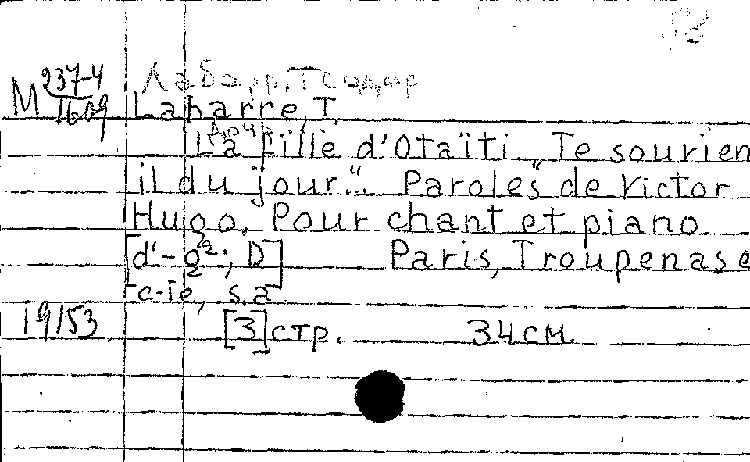 52
M 237-4/1609
Лабарр, Теодор
Labarre, T.
Дочь
La fille d'Otaïti „Te sourien
il du jour". Paroles de Victor
Hugo. Pour chant et piano
[d'-g²; D] Paris, Troupenas e
c-ie, s.a
19153 [3] стр. 34 см.